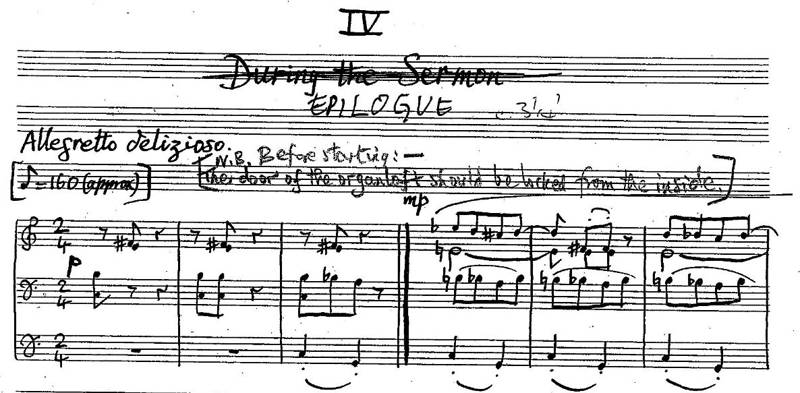 IV
During the Sermon
EPILOGUE c. 3¼'
Allegretto delizioso.
[N.B. Before starting:—
[♪=160 (approx)] The door of the organloft should be locked from the inside.]
mp
2 4
p
2 4
2 4